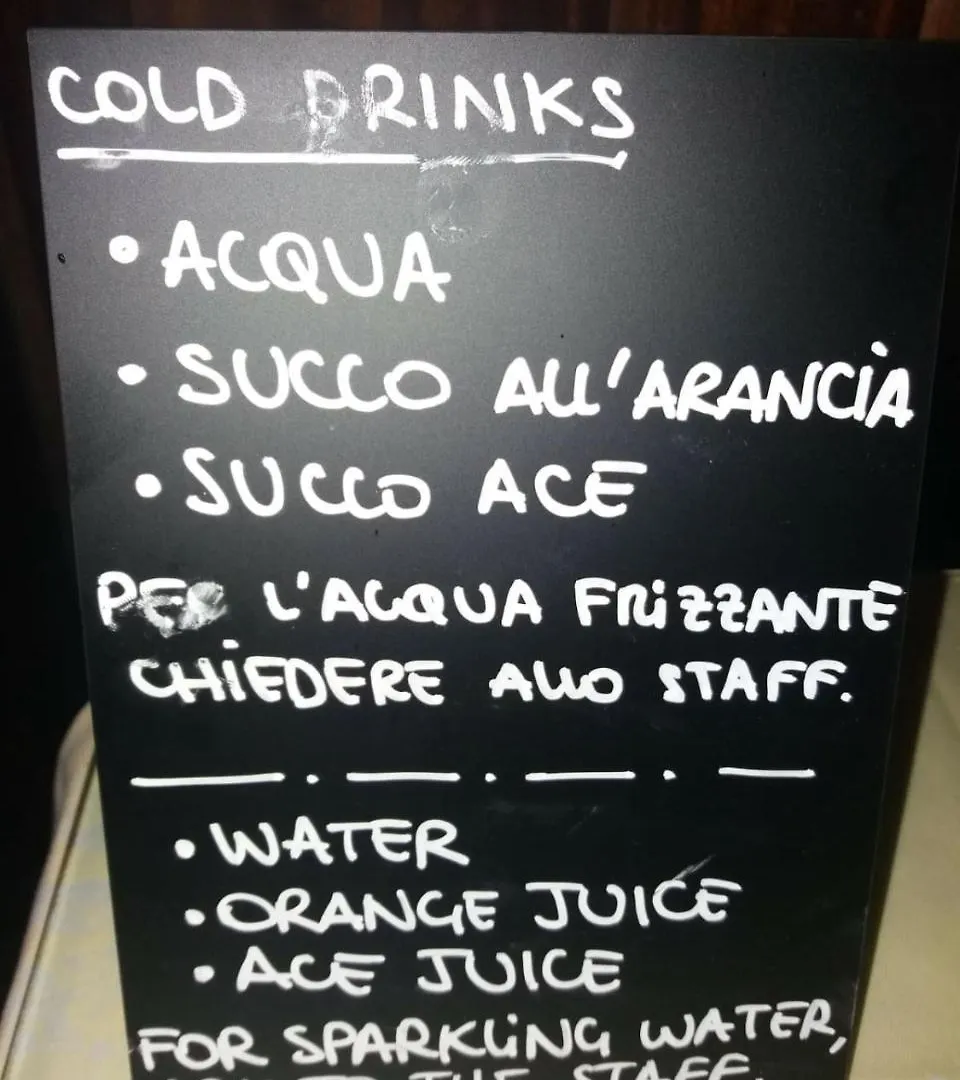 COLD DRINKS
• ACQUA
• SUCCO ALL'ARANCIA
• SUCCO ACE
PER L'ACQUA FRIZZANTE
CHIEDERE ALLO STAFF.
— . — . — . —
• WATER
• ORANGE JUICE
• ACE JUICE
FOR SPARKLING WATER,
THE STAFF.